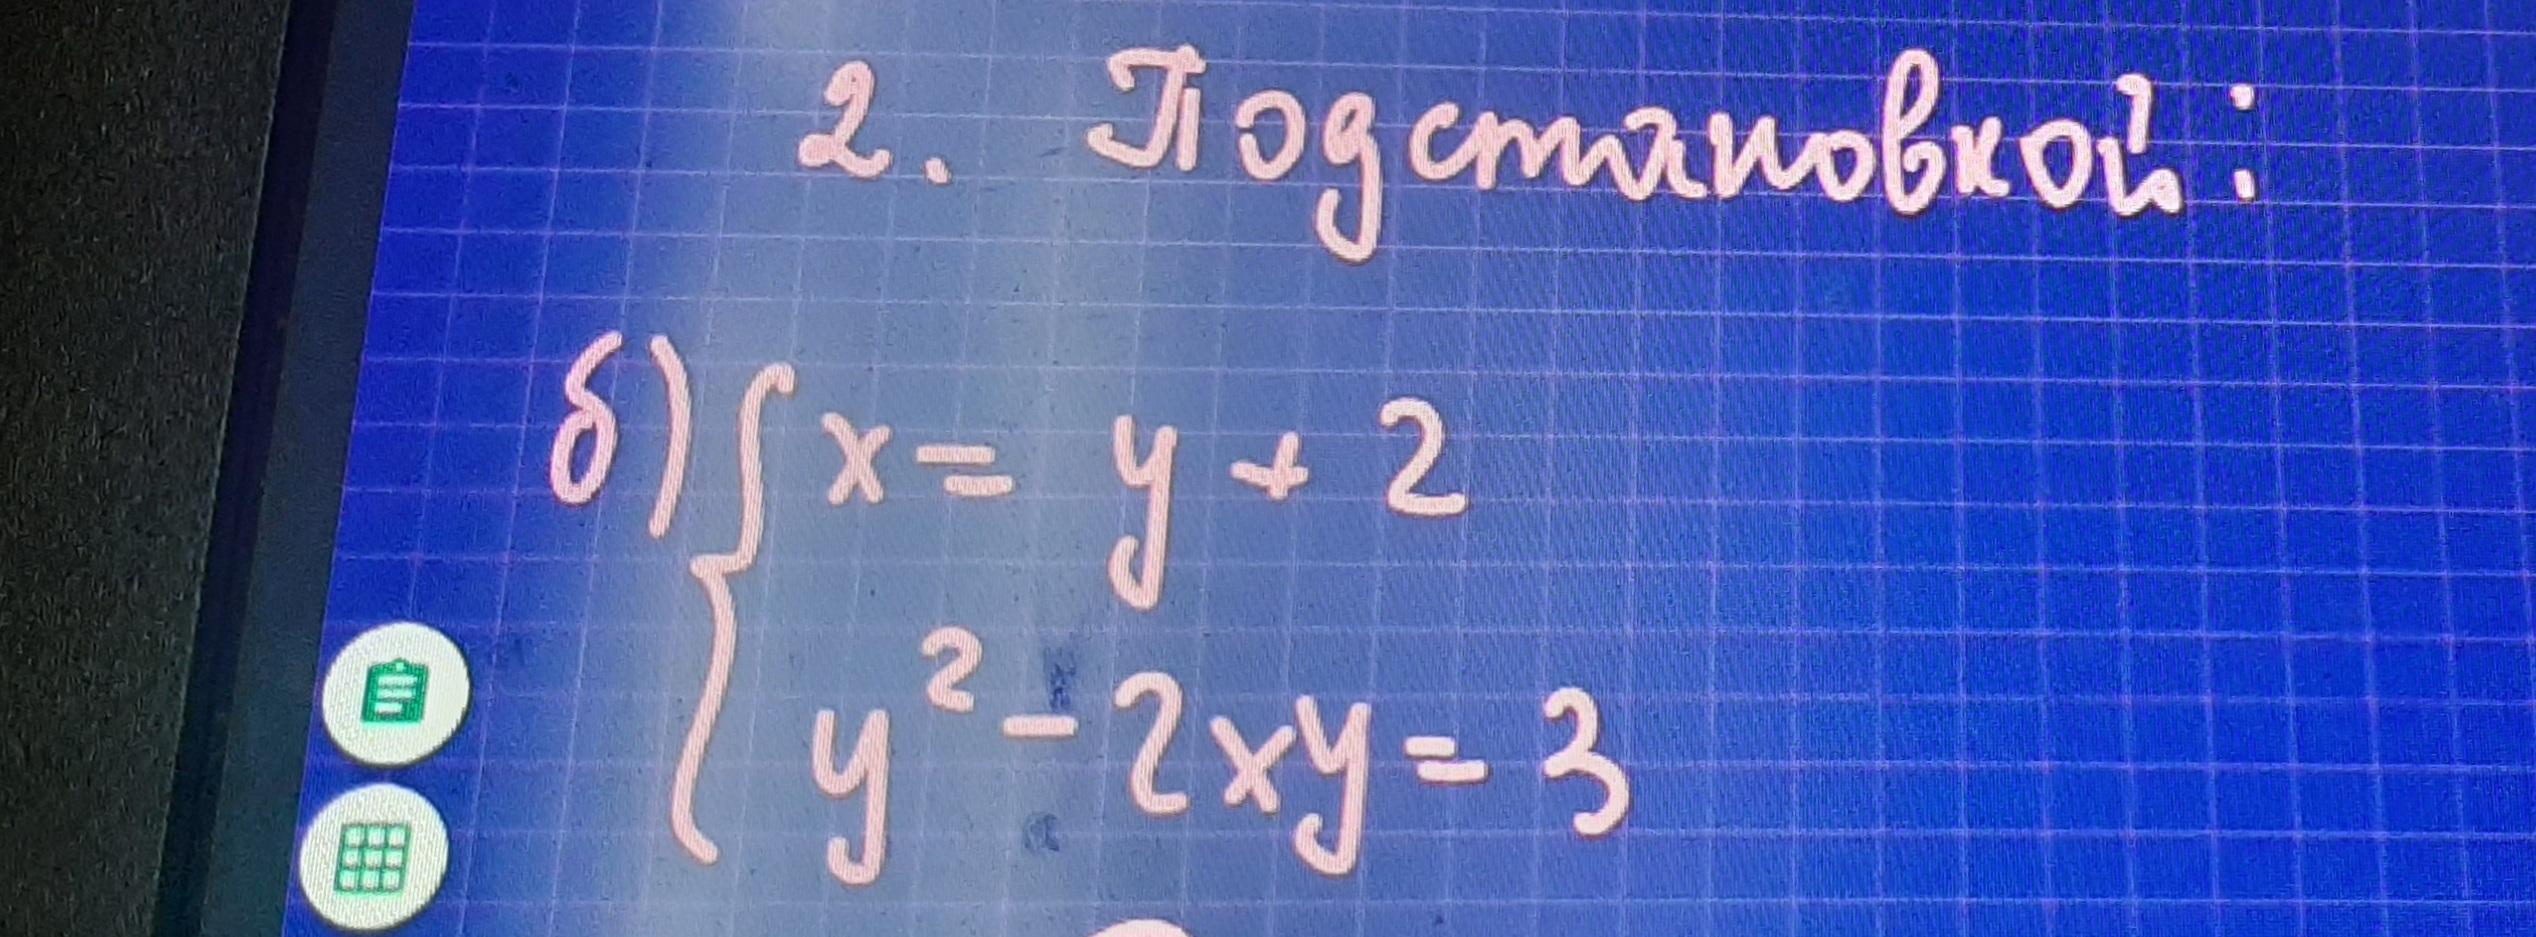 2. Подстановкой:
б) { x = y + 2
y² - 2xy = 3